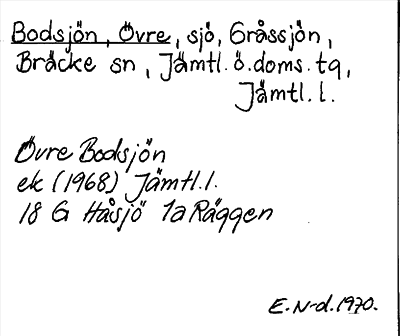 Bodsjön, Övre, sjö, Gråssjön,
Bräcke sn, Jämtl. ö. doms. tq,
Jämtl. l.
Övre Bodsjön
ek (1968) Jämtl. l.
18 G Håsjö 1a Räggen
E. N-d. 1970.